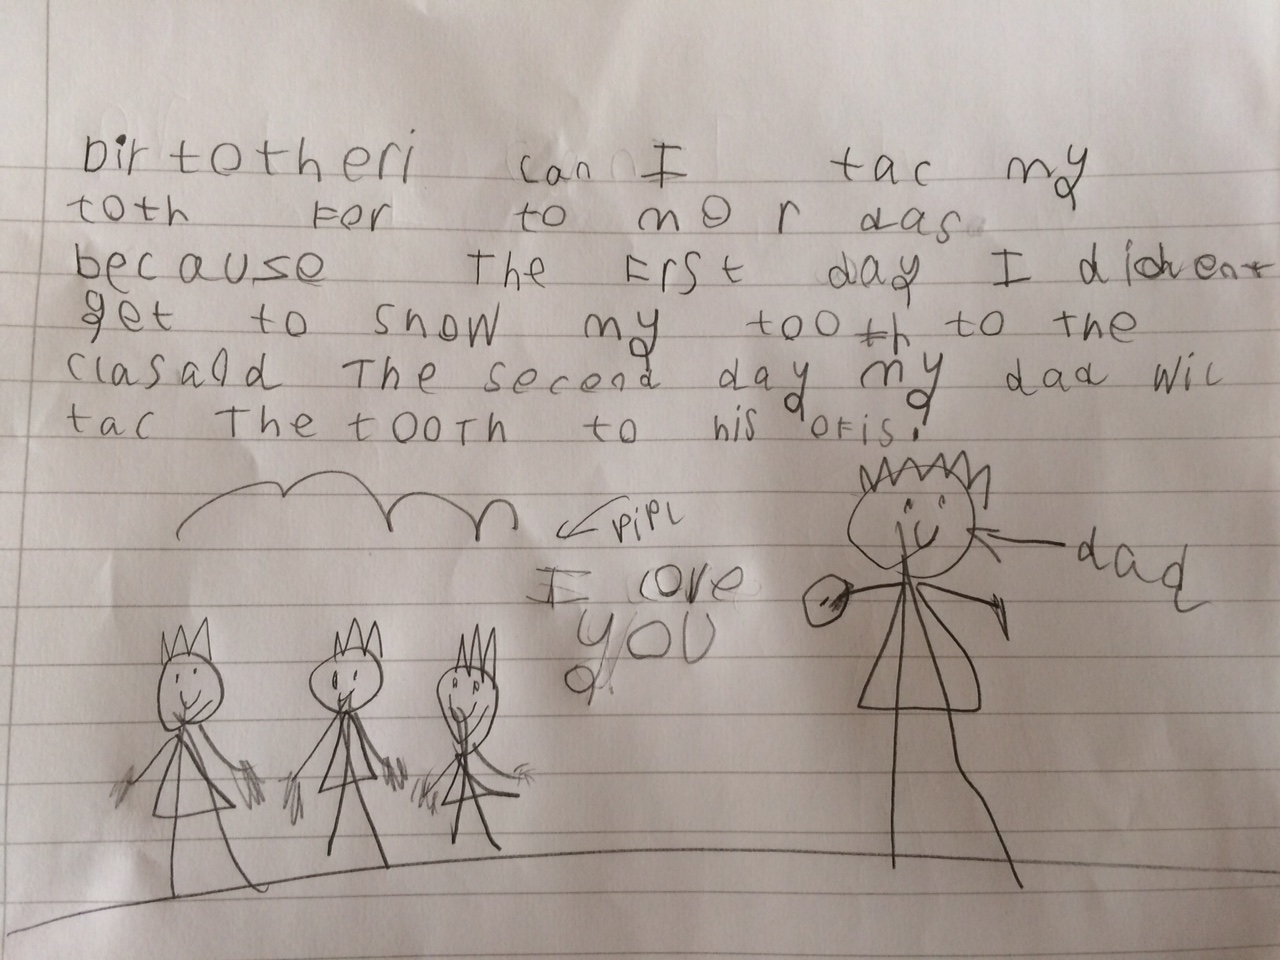 Dir totheri can I tac my
toth For to mor das
because The First day I dident
get to show my tooth to the
clasand The second day my dad wil
tac The tooth to his ofis.
pipl
I love
you
dad